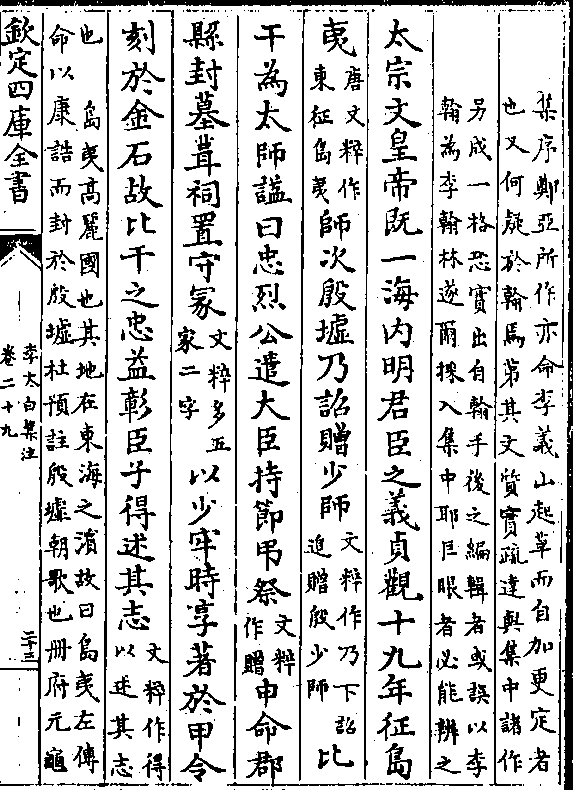 集序鄭亞所作亦命李義山起草而自加更定者
也又何疑於翰焉第其文質實疏達與集中諸作
另成一格恐實出自翰手後之編輯者或誤以李
翰為李翰林遂爾採入集中耶巨眼者必能辨之
太宗文皇帝既一海内明君臣之義貞觀十九年征島
夷唐文粹作東征島夷師次殷墟乃詔贈少師文粹作乃下詔追贈殷少師比
干為太師諡曰忠烈公遣大臣持節弔祭文粹作贈申命郡
縣封墓葺祠置守冢文粹多五家二字以少牢時享著於甲令
刻於金石故比干之忠益彰臣子得述其志文粹作得以述其志
也島夷高麗國也其地在東海之濵故曰島夷左傳
命以康誥而封於殷墟杜預註殷墟朝歌也册府元龜
欽定四庫全書
李太白集注
卷二十九
二十三